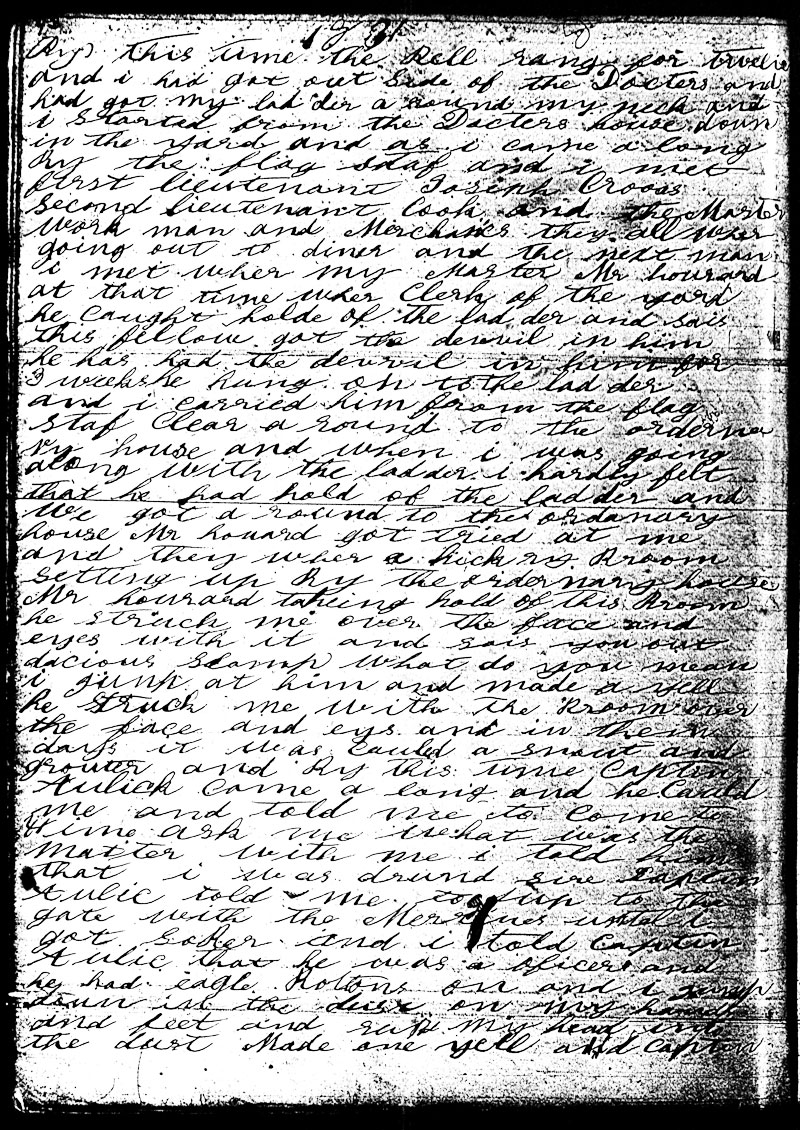 By this time the Bell rang for twelve
and i had got out Side of the Docters and
had got my lad der a round my neck and
i started from the Docters house down
in the yard and as i came a long
By the flag staf and i met
first lieutenant Joseph Cross
second lieutenant Cook and the Master
work man and Merchanes they all wher
going out to diner and the next man
i met wher my Master Mr houard
at that time wher Clerk of the yard
he caught holde of the lad der and sais
this fellow got the devvil in him
he has had the devvil in him for
3 weeks he hung on to the lad der
and i carried him from the flag
staf Clear a round to the orderna
ry house and when i was going
along with the ladder i hardly felt
that he had hold of the ladder and
We got a round to the ordonary
house Mr houard got tried at me
and they wher a hick ry Broom
setting up By the ordernary house
Mr houard taking hold of this Broom
he struck me over the face and
eyes with it and sais you out
dacious Scamp what do you mean
i jump at him and made a yell
he Struck me with the Broom over
the face and eys and in them
days it was Could a snout and
grouter and By this time Captin
Aulick Came a long and he Could
me and told me to Come to
hime ask me what was the
matter with me i told him
that i was drund sire Captin
Aulic told me to up to the
gate with the Merines until i
got SoBer and i told Captin
Aulic that he was a oficer and
he had eagle Botons on and i jump
down in the dust on my hands
and feet and run my head into
the dust Made one yell and Captin